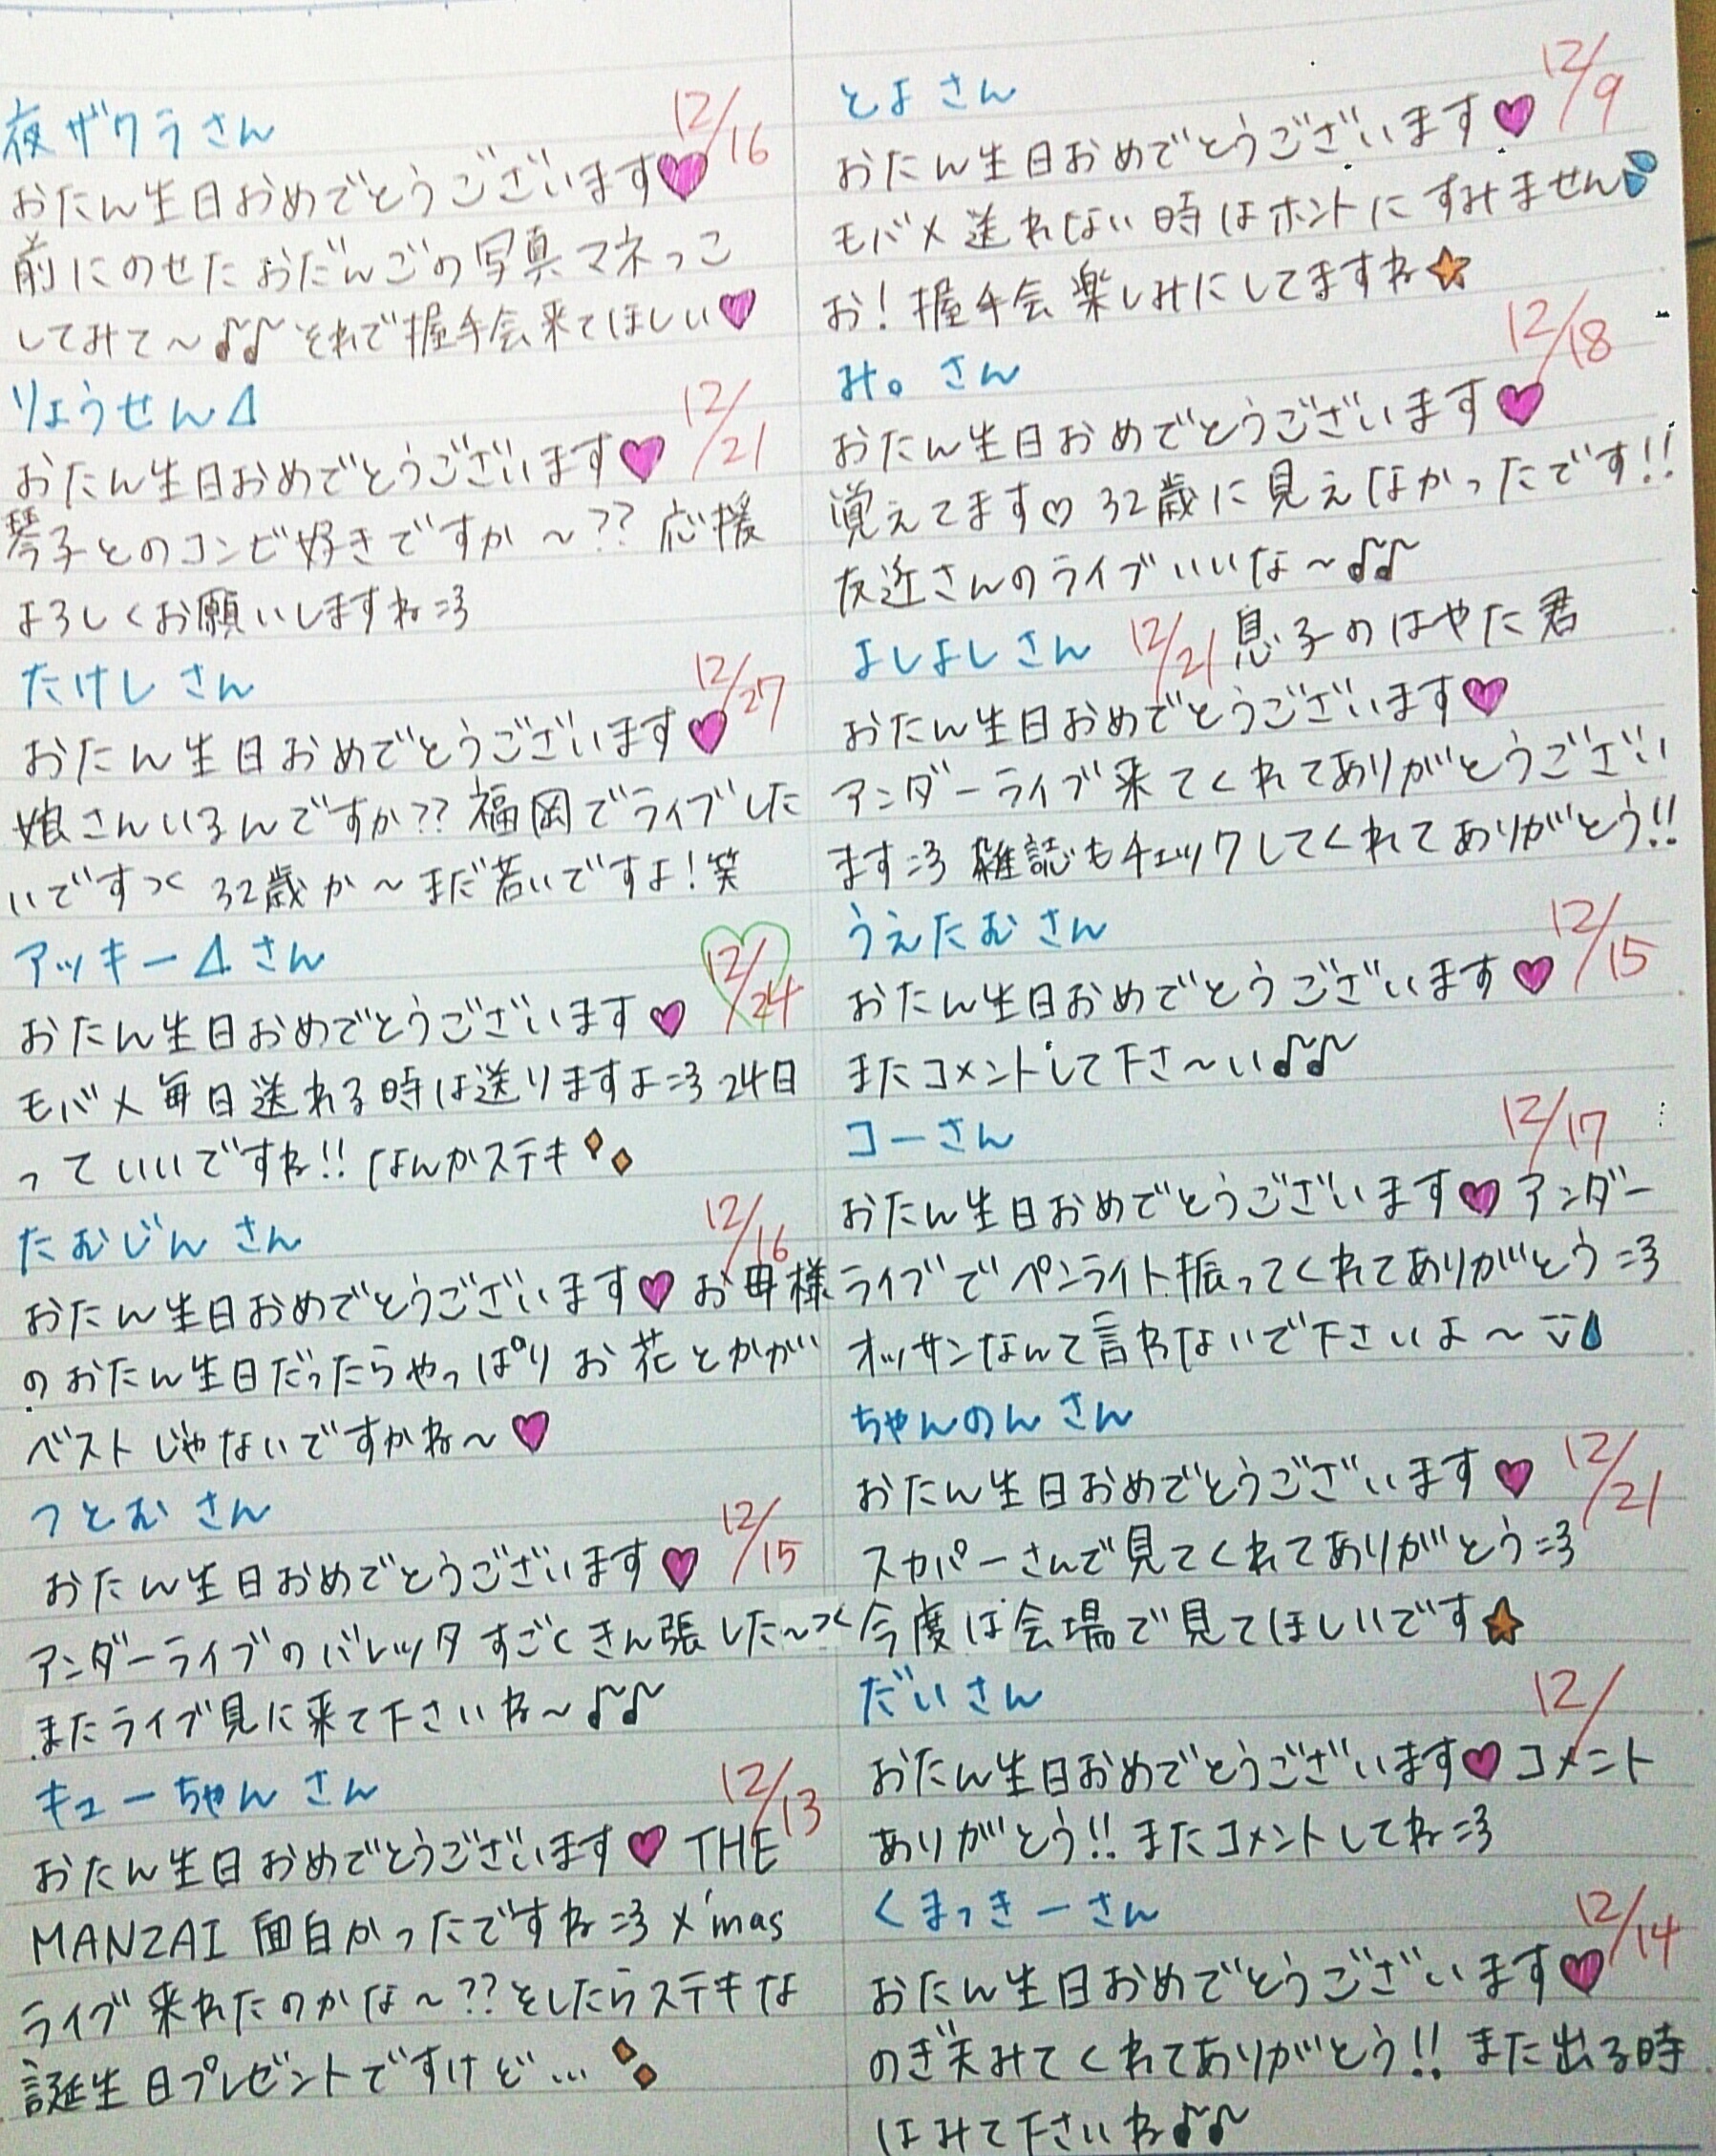 夜ザクラさん 12/16
おたん生日おめでとうございます♥
前にのせたおだんごの写真マネっこ
してみて〜♪♪それで握手会来てほしい♥
りょうせん⊿ 12/21
おたん生日おめでとうございます♥
琴子とのコンビ好きですか〜??応援
よろしくお願いしますね=3
たけしさん 12/27
おたん生日おめでとうございます♥
娘さんいるんですか??福岡でライブした
いです>< 32歳か〜まだ若いですよ!笑
アッキー⊿さん 12/24
おたん生日おめでとうございます♥
モバメ毎日送れる時は送りますよ=3 24日
っていいですね!!なんかステキ
たむじんさん 12/16
おたん生日おめでとうございます♥お母様
のおたん生日だったらやっぱりお花とかが
ベストじゃないですかね〜♥
つとむさん 12/15
おたん生日おめでとうございます♥
アンダーライブのバレッタすごくきん張した〜><
またライブ見に来て下さいね〜♪♪
キューちゃんさん 12/13
おたん生日おめでとうございます♥THE
MANZAI面白かったですね=3 X'mas
ライブ来れたのかな〜??としたらステキな
誕生日プレゼントですけど…
とよさん 12/9
おたん生日おめでとうございます♥
モバメ送れない時はホントにすみません
お!握手会楽しみにしてますね★
み。さん 12/18
おたん生日おめでとうございます♥
覚えてます♡32歳に見えなかったです!!
友近さんのライブいいな〜♪♪
よしよしさん 12/21 息子のはやた君
おたん生日おめでとうございます♥
アンダーライブ来てくれてありがとうござい
ます=3 雑誌もチェックしてくれてありがとう!!
うえたむさん 12/15
おたん生日おめでとうございます♥
またコメントして下さ〜い♪♪
コーさん 12/17
おたん生日おめでとうございます♥アンダー
ライブでペンライト振ってくれてありがとう=3
オッサンなんて言わないで下さいよ〜
ちゃんのんさん
おたん生日おめでとうございます♥ 12/21
スカパーさんで見てくれてありがとう=3
今度は会場で見てほしいです★
だいさん 12/
おたん生日おめでとうございます♥コメント
ありがとう!!またコメントしてね=3
くまっきーさん 12/14
おたん生日おめでとうございます♥
のぎ天みてくれてありがとう!!また出る時
はみて下さいね♪♪